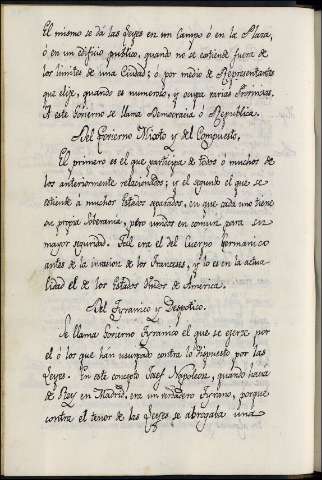 El mismo se dá las Leyes en un Campo ó en la Plaza,
ó en un edificio publico, quando no se estiende fuera de
los limites de una Ciudad; o por medio de Representantes
que elije, quando es numeroso, y ocupa varias Provincias.
A este Govierno se llama Democracia ó Republica.
Del Govierno Mixto y del Compuesto.
El primero es el que participa de todos o muchos de
los anteriormente relacionados; y el segundo el que se
estiende á muchos Estados separados, en que cada uno tiene
su propia Soberania, pero unidos en comun para su
mayor seguridad. Tal era el del Cuerpo Germanico
antes de la invasion de los Franceses, y lo es en la actua-
lidad el de los Estados Unidos de América.
Del Tyranico y Despotico.
Se llama Govierno Tyranico el que se egerce por
el ó los que han usurpado contra lo dispuesto por las
Leyes. En este concepto Josef Napoleon, quando hacia
de Rey en Madrid, era un verdadero Tyrano, porque
contra el tenor de las Leyes se abrogaba una